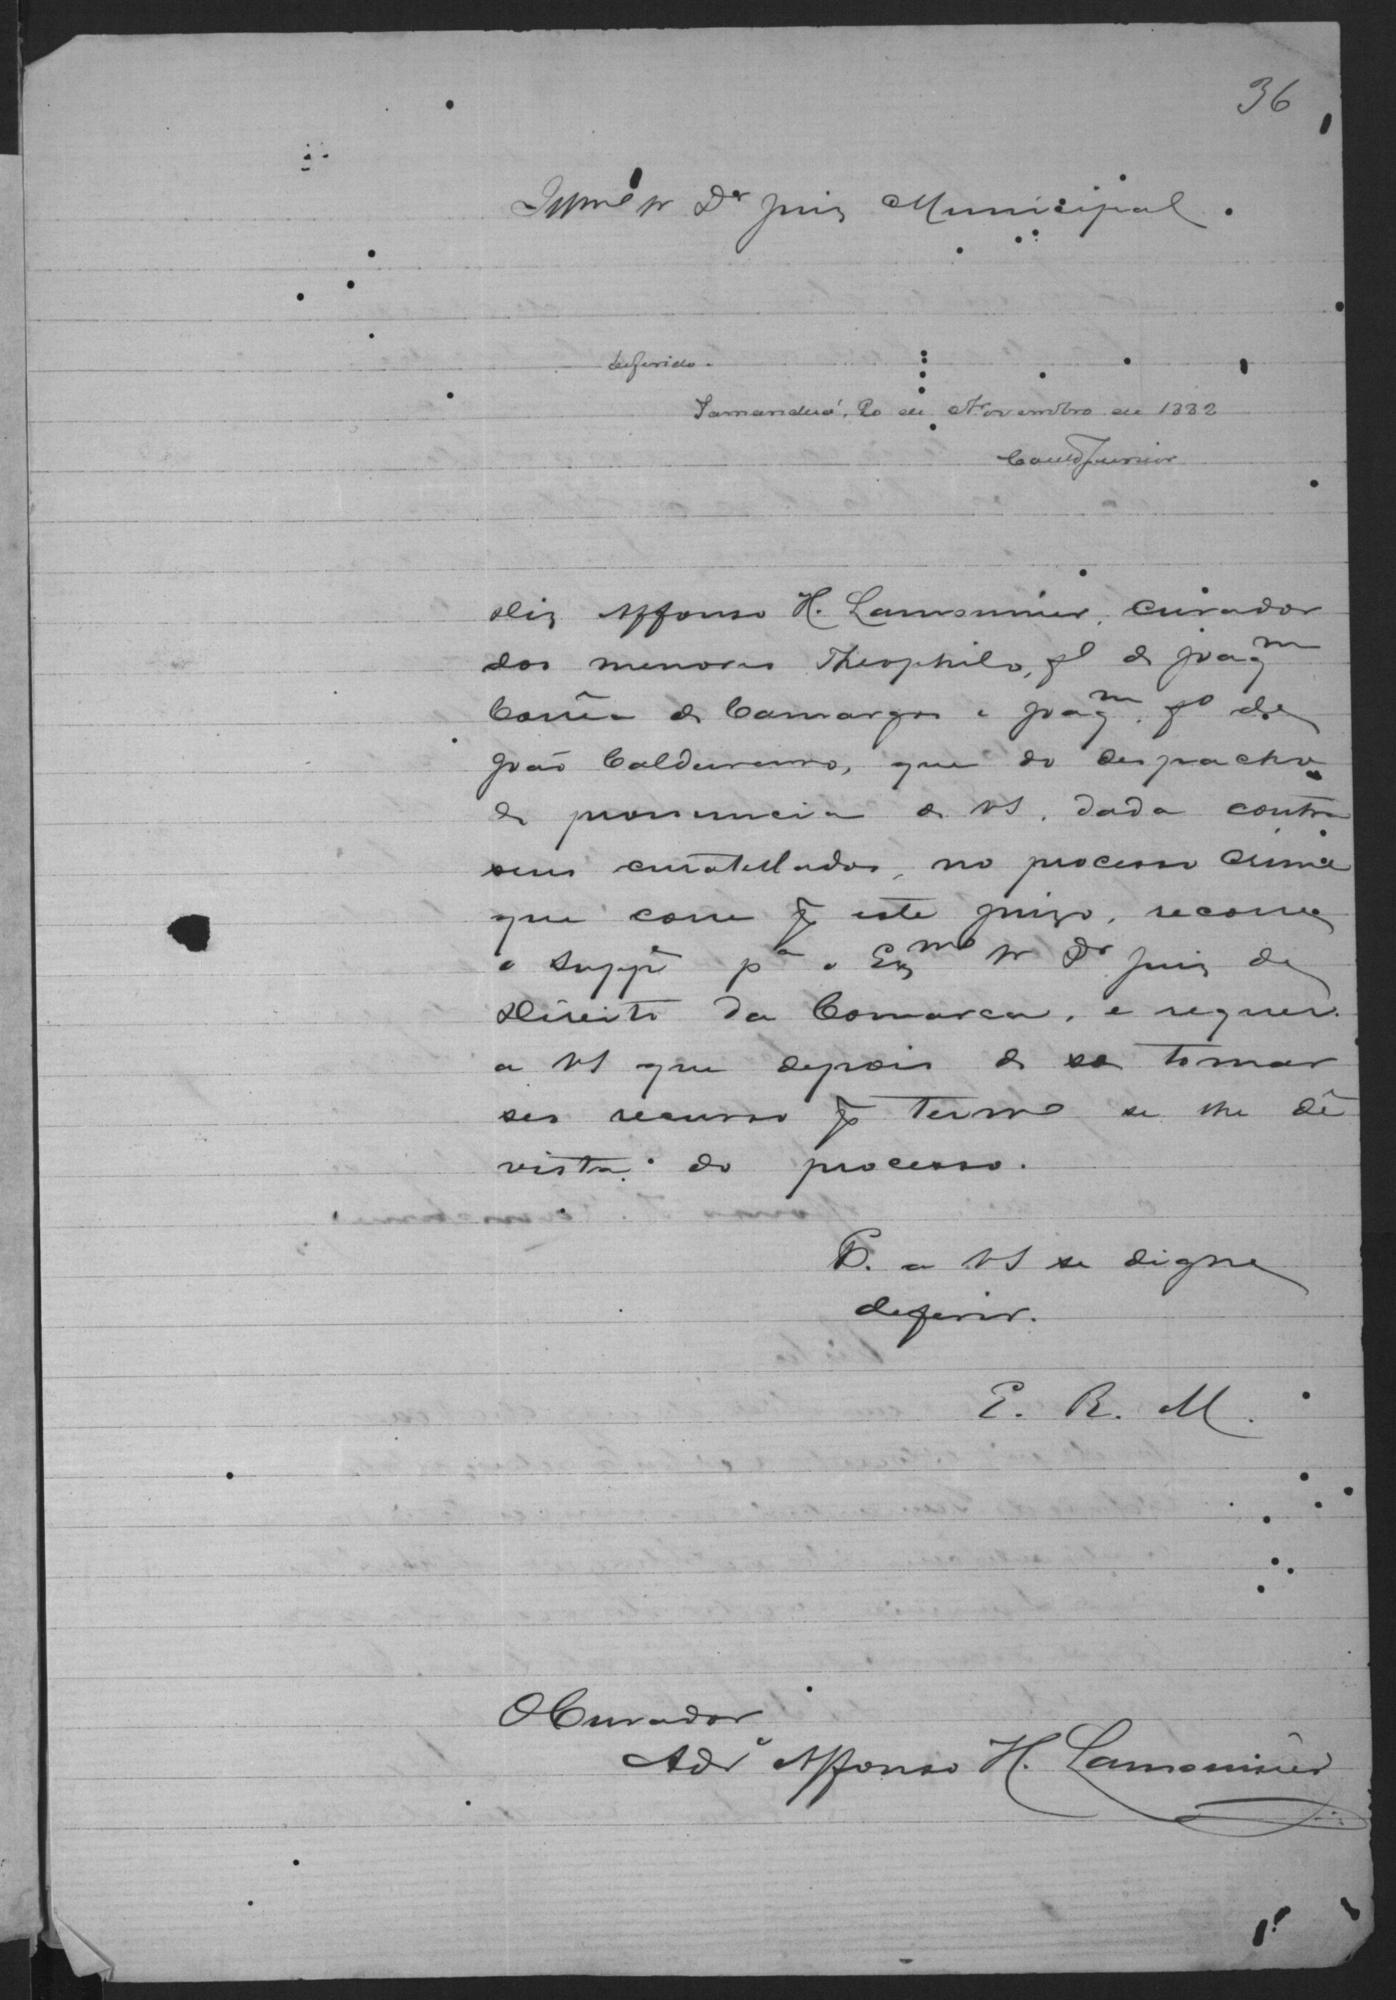 36
Illmo Sr Dr Juiz Municipal
Deferido.
Tamanduá, 20 de Novembro de 1882
Diz Affonso H. Lamounier, curador
dos menores Theophilo, fo de Joaqm
Corrêa de Camargos e Joaqm, fo de
João Caldeireiro, que do despacho
de pronuncia de VS, dada contra
seus curatellados, no processo crime
que corre p este juizo, recorre
o suppe pa o Exmo Sr Dr Juiz de
Direito da Comarca, e requer
a VS que depois de se tomar
seo recurso p termo se lhe dê
vista do processo.
P. a VS se digne
deferir.
E. R. M.
O Curador
Ado Affonso H. Lamounier